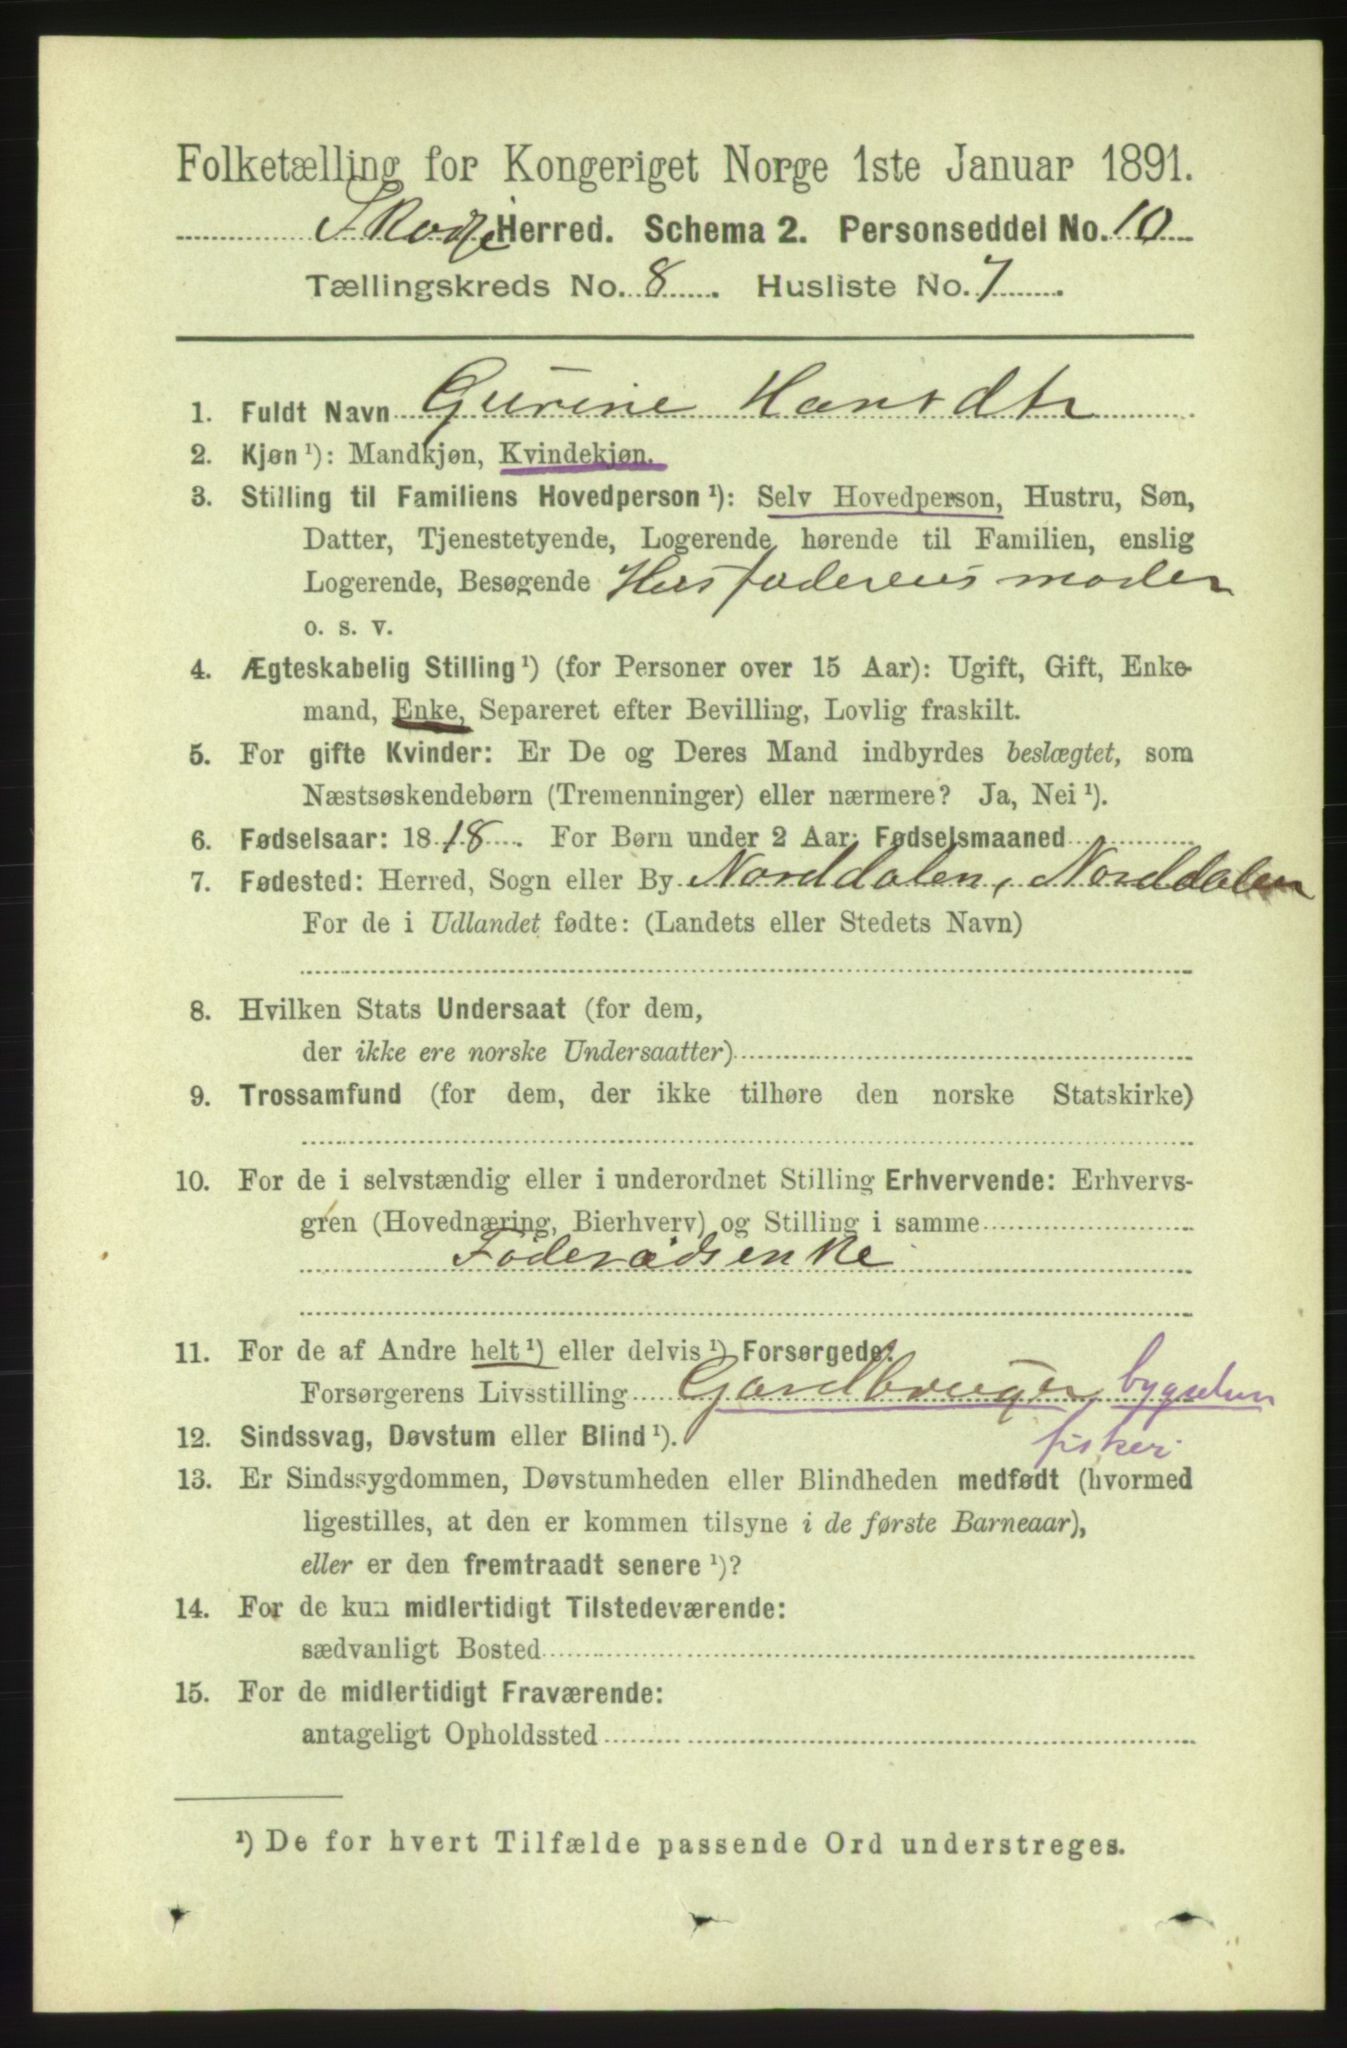 Folketælling for Kongeriget Norge 1ste Januar 1891.
Skodje Herred. Schema 2. Personseddel No. 10
Tællingskreds No. 8. Husliste No. 7.
1. Fuldt Navn Gurine Hansdtr
2. Kjøn ¹): Mandkjøn, Kvindekjøn.
3. Stilling til Familiens Hovedperson ¹): Selv Hovedperson, Hustru, Søn,
Datter, Tjenestetyende, Logerende hørende til Familien, enslig
Logerende, Besøgende Husfaderens moder
o. s. v.
4. Ægteskabelig Stilling ¹) (for Personer over 15 Aar): Ugift, Gift, Enke-
mand, Enke, Separeret efter Bevilling, Lovlig fraskilt.
5. For gifte Kvinder: Er De og Deres Mand indbyrdes beslægtet, som
Næstsøskendebørn (Tremenninger) eller nærmere? Ja, Nei ¹).
6. Fødselsaar: 1818. For Børn under 2 Aar: Fødselsmaaned
7. Fødested: Herred, Sogn eller By Norddalen, Norddalen
For de i Udlandet fødte: (Landets eller Stedets Navn)
8. Hvilken Stats Undersaat (for dem,
der ikke ere norske Undersaatter)
9. Trossamfund (for dem, der ikke tilhøre den norske Statskirke)
10. For de i selvstændig eller i underordnet Stilling Erhvervende: Erhvervs-
gren (Hovednæring, Bierhverv) og Stilling i samme
Föderådsenke
11. For de af Andre helt ¹) eller delvis ¹) Forsørgede:
Forsørgerens Livsstilling Gardbruger, bygselm
fisker
12. Sindssvag, Døvstum eller Blind ¹).
13. Er Sindssygdommen, Døvstumheden eller Blindheden medfødt (hvormed
ligestilles, at den er kommen tilsyne i de første Barneaar),
eller er den fremtraadt senere ¹)?
14. For de kun midlertidigt Tilstedeværende:
sædvanligt Bosted
15. For de midlertidigt Fraværende:
antageligt Opholdssted
¹) De for hvert Tilfælde passende Ord understreges.